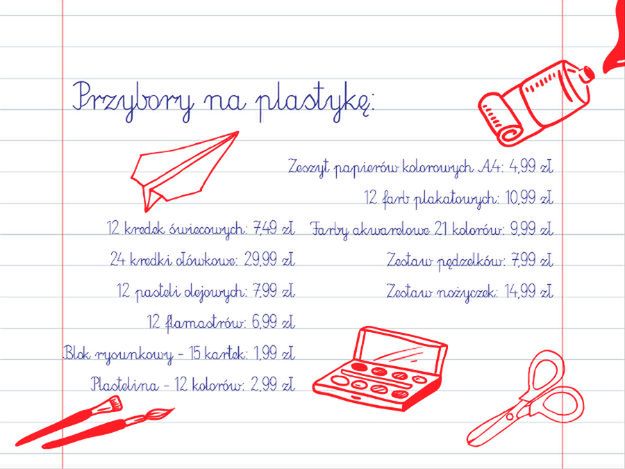 Przybory na plastykę:
12 kredek świecowych: 7,49 zł
24 kredki ołówkowe: 29,99 zł
12 pasteli olejowych: 7,99 zł
12 flamastrów: 6,99 zł
Blok rysunkowy - 15 kartek: 1,99 zł
Plastelina - 12 kolorów: 2,99 zł
Zeszyt papierów kolorowych A4: 4,99 zł
12 farb plakatowych: 10,99 zł
Farby akwarelowe 21 kolorów: 9,99 zł
Zestaw pędzelków: 7,99 zł
Zestaw nożyczek: 14,99 zł